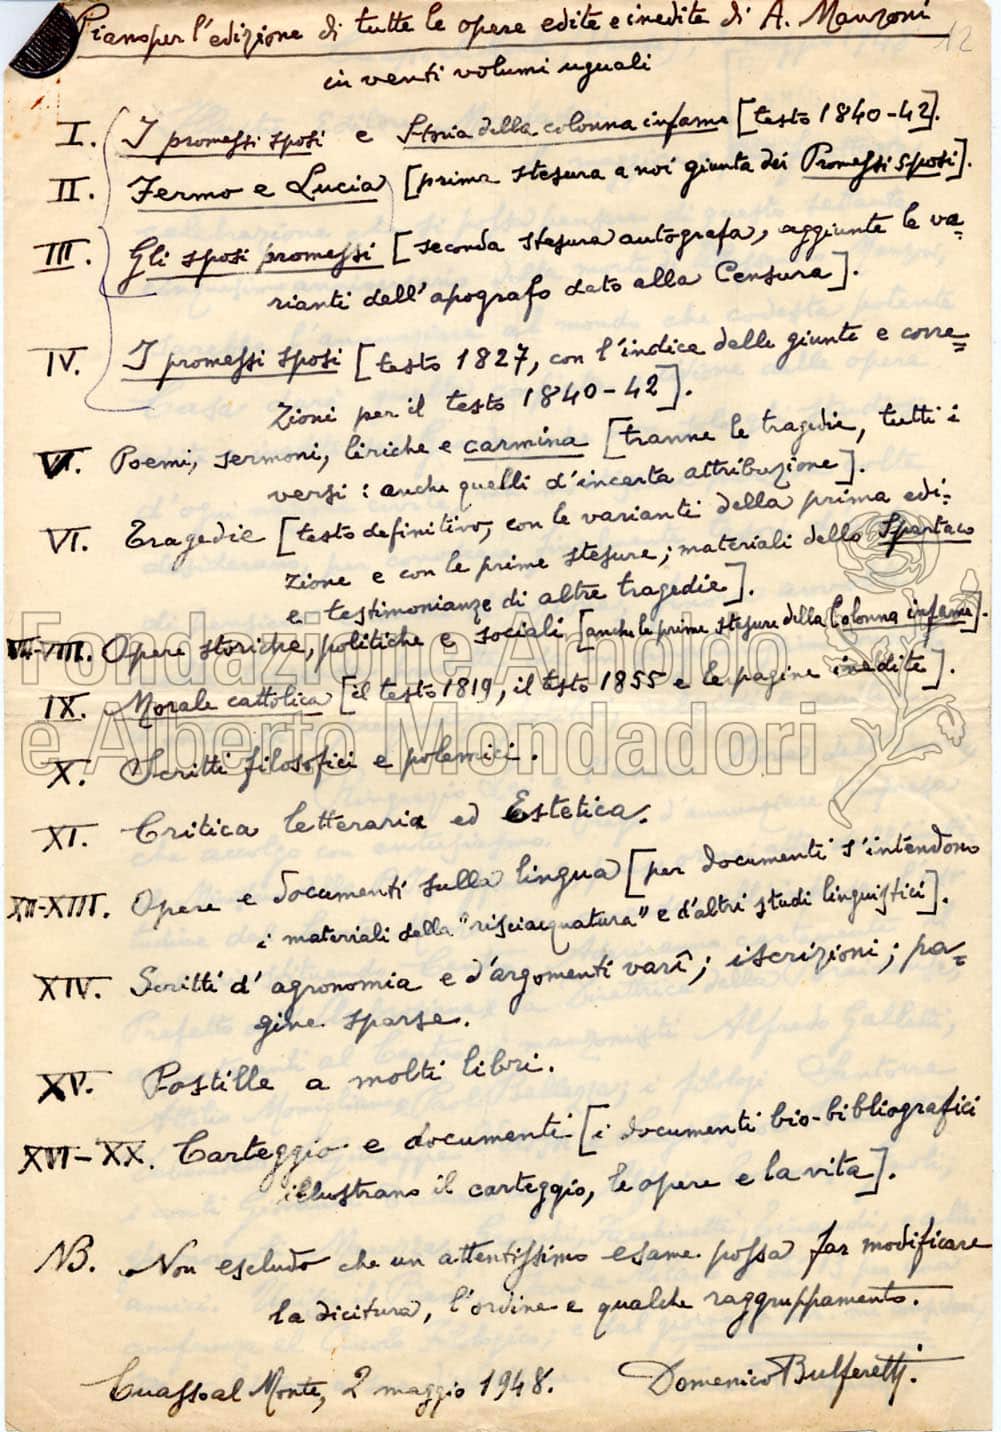 Piano per l'edizione di tutte le opere edite e inedite di A. Manzoni
12
in venti volumi uguali
I. I promessi sposi e Storia della colonna infame [testo 1840-42].
II. Fermo e Lucia [prima stesura a noi giunta dei Promessi Sposi].
III. Gli sposi promessi [seconda stesura autografa, aggiunte le va=
rianti dell'apografo dato alla Censura].
IV. I promessi sposi [testo 1827, con l'indice delle giunte e corre=
zioni per il testo 1840-42].
V. Poemi, sermoni, liriche e carmina [tranne le tragedie, tutti i
versi: anche quelli d'incerta attribuzione].
VI. Tragedie [testo definitivo, con le varianti della prima edi=
zione e con le prime stesure; materiali dello Spartaco
e testimonianze di altre tragedie].
VII-VIII. Opere storiche, politiche e sociali [anche le prime stesure della Colonna infame].
IX. Morale cattolica [il testo 1819, il testo 1855 e le pagine inedite].
X. Scritti filosofici e polemici.
XI. Critica letteraria ed Estetica.
XII-XIII. Opere e documenti sulla lingua [per documenti s'intendono
i materiali della "risciacquatura" e d'altri studi linguistici].
XIV. Scritti d'agronomia e d'argomenti varî; iscrizioni; pa=
gine sparse.
XV. Postille a molti libri.
XVI-XX. Carteggio e documenti [i documenti bio-bibliografici
illustrano il carteggio, le opere e la vita].
NB. Non escludo che un attentissimo esame possa far modificare
la dicitura, l'ordine e qualche raggruppamento.
Cuasso al Monte, 2 maggio 1948. Domenico Bulferetti.
Fondazione Arnoldo
e Alberto Mondadori